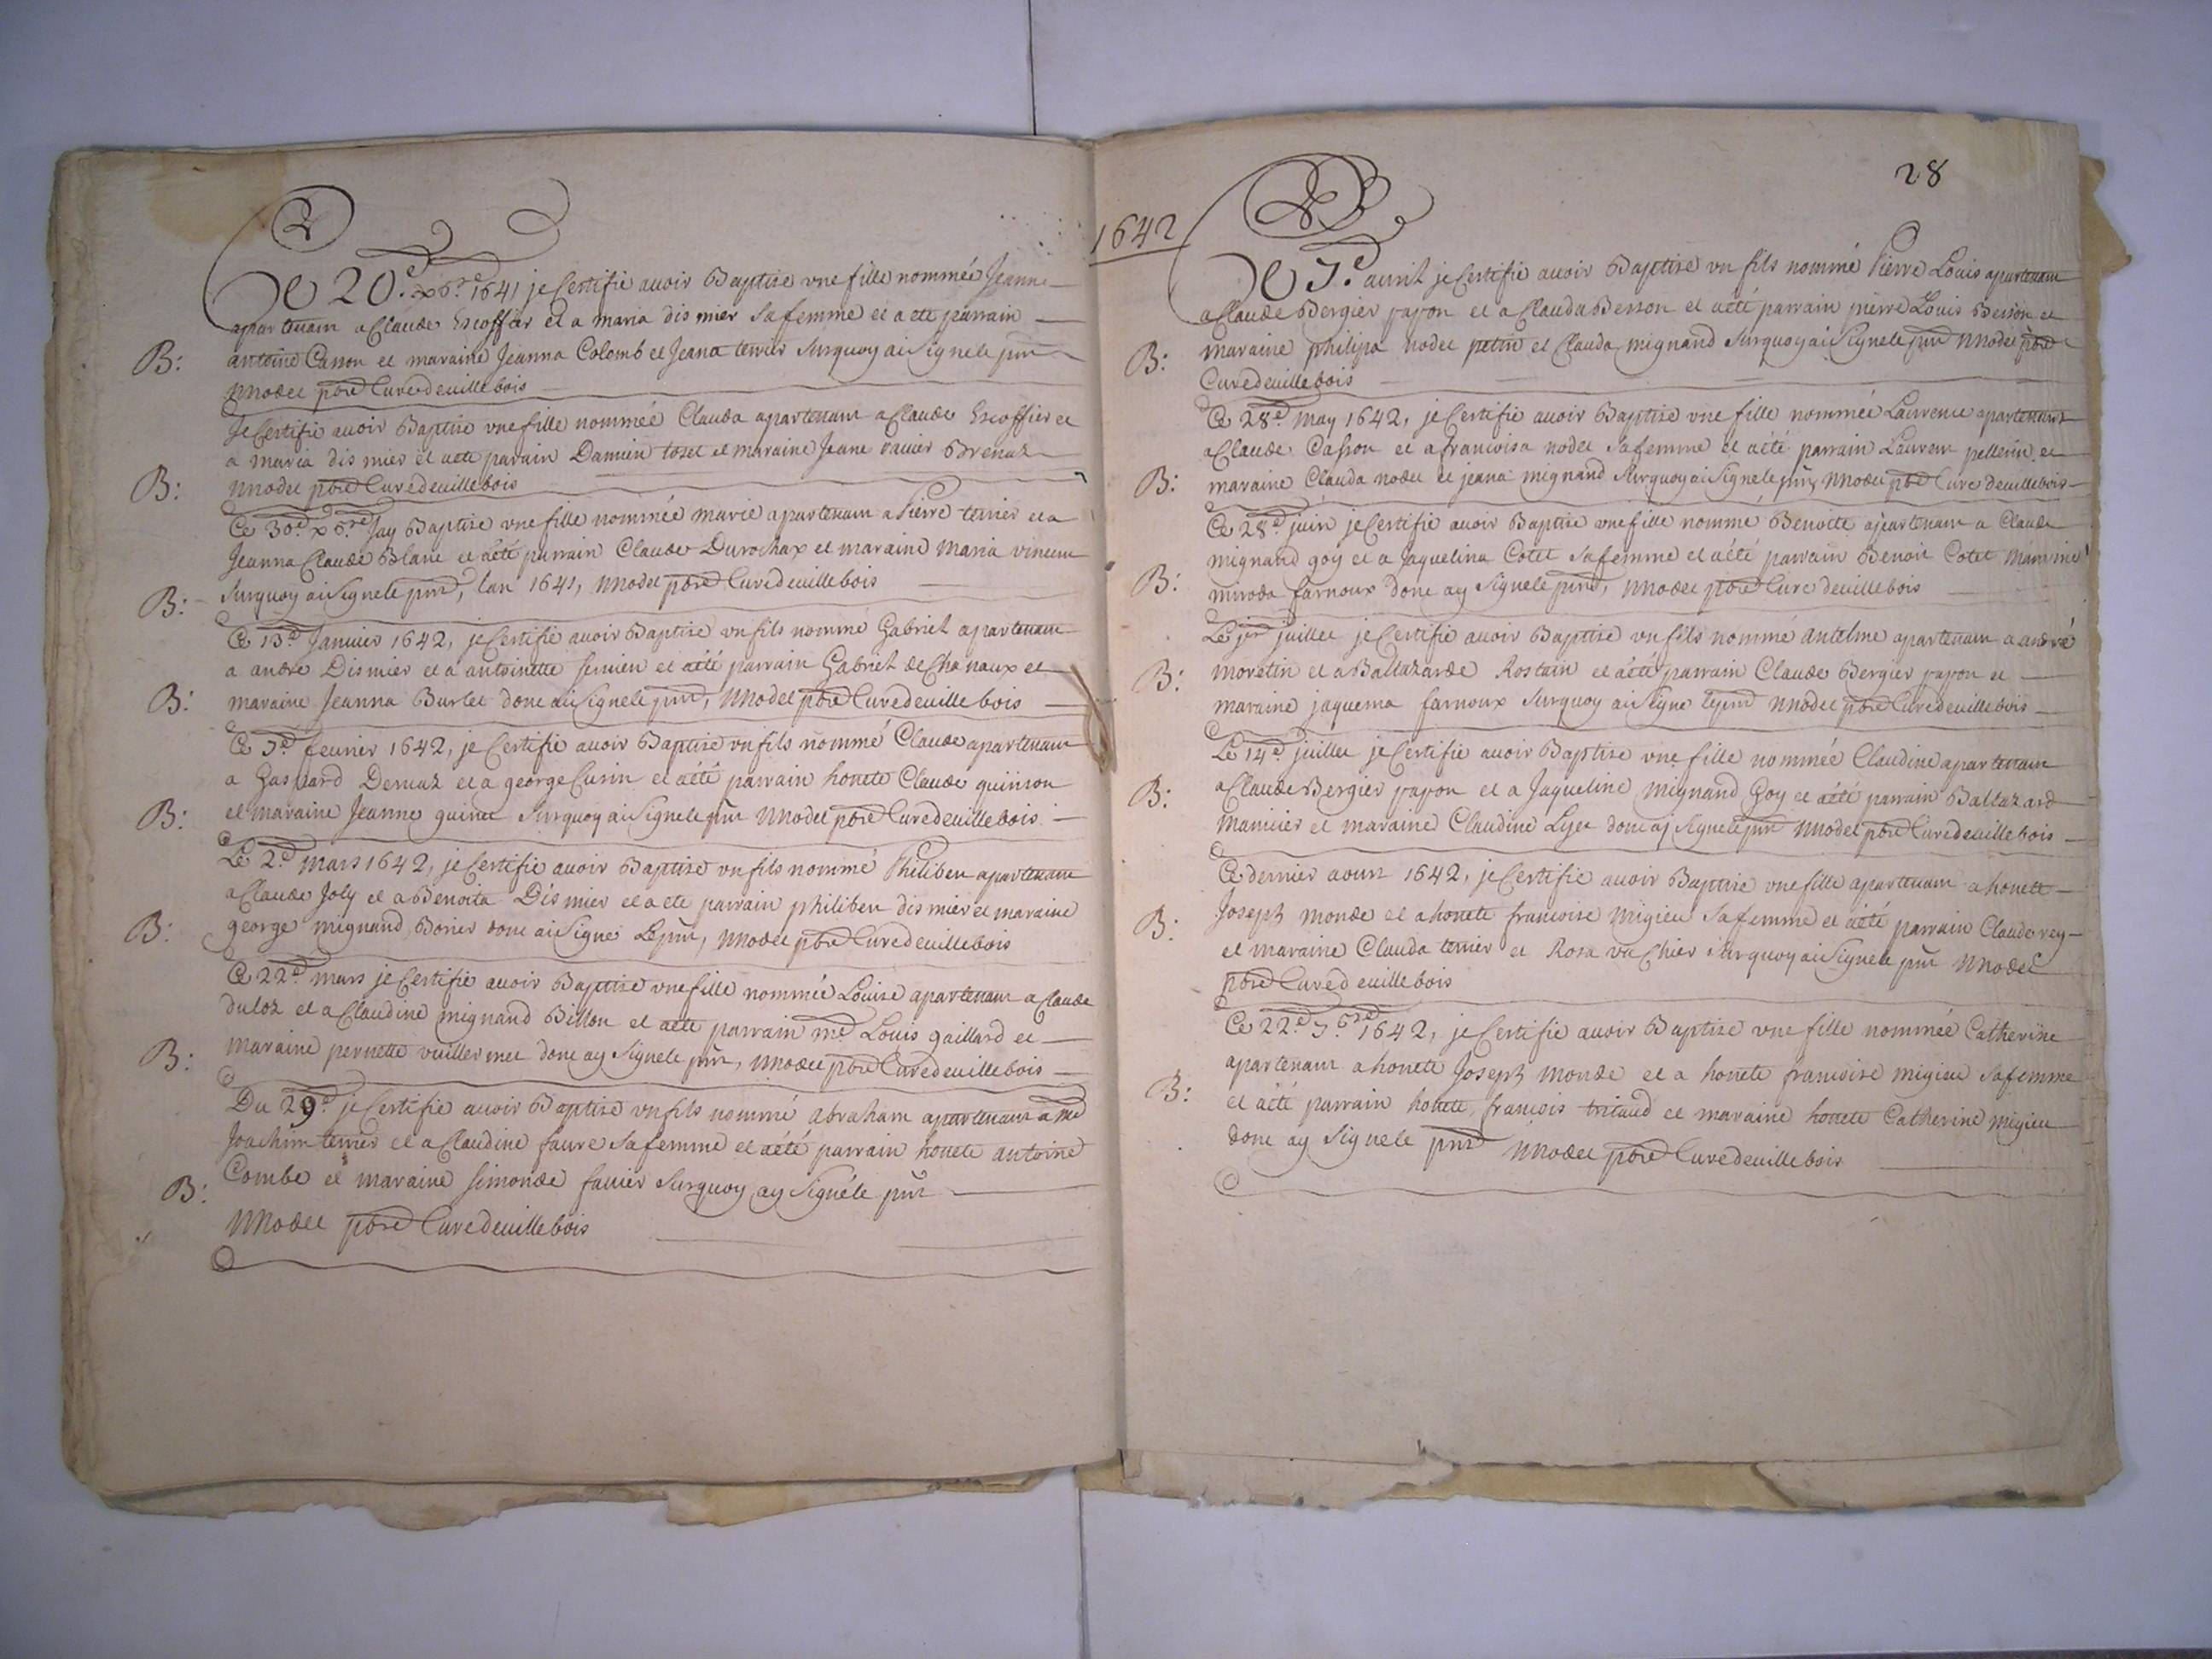 Ce 20.e x6.re 1641 je Certifie auoir Baptise vne fille nommée Jeanne
apartenam a Claude Escoffier et a maria dis mier Sa femme et a ete parrain
B: antoine Canon et maraine Jeanna Colomb et Jeana terrier Surquoy ai Signe le pnt
Nnodet pbre Curé deuillebois
Je Certifie auoir Baptise vne fille nommée Clauda apartenam a Claude Escoffier et
a maria dis mier et aete parain Damien toset et maraine Jeane Brenaz
B: Nnodet pbre Curé deuillebois
Ce 30.e x6.re Jay Baptise vne fille nommée marie apartenam a Pierre terrier et a
Jeanna Claude Blanc et aété parrain Claude Durochax et maraine Maria vincent
B: Surquoy ai Signe le pnt, lan 1641, Nnodet pbre Curé deuillebois
Ce 13.e Januier 1642, je Certifie auoir Baptise vn fils nommé Gabriel apartenam
a andre Dismier et a antoinette et aété parrain Gabriel de Chanaux et
B: maraine Jeanna Burlet donc ai Signe le pnt, Nnodet pbre Curé deuille bois
Ce 7.e feurier 1642, je Certifie auoir Baptise vn fils nommé Claude apartenam
a Gaspard Deruaz et a george Curin et aété parrain honete Claude quinson
B: et maraine Jeanne guinet Surquoy ai Signe le pnt Nnodet pbre Curé deuillebois
Le 2.e Mars 1642, je Certifie auoir Baptise vn fils nommé Philiber apartenam
a Claude Joly et a Benoita Dis mier et a ete parrain philiber dis mier et maraine
B: george mignand, Borier donc ai Signe Le pnt, Nnodet pbre Curé deuillebois
Ce 22.e mars je Certifie auoir Baptise vne fille nommée Louise apartenam a Claude
duloz et a Claudine mignand Billon et aete parrain me Louis gaillard et
B: maraine pernette vuillermet donc ay Signe le pnt, Nnodet pbre Curé deuillebois
Du 29.e je Certifie auoir Baptise vn fils nommé abraham apartenam a me
Joachim terrier et a Claudine faure Sa femme et aété parrain honete antoine
B: Combe et maraine Simonde fauier Surquoy ay Signé le pnt
Nnodet pbre Curé deuillebois
28
1642
Ce 7.e auril je Certifie auoir Baptise vn fils nommé Pierre Louis apartenam
a Claude Bergier papon et a Clauda Berson et aété parrain pierre Louis Berson et
B: maraine philipa nodet petin et Clauda mignand Surquoy ai Signe le pnt Nnodet pbre
Curé deuillebois
Ce 28.e May 1642, je Certifie auoir Baptise vne fille nommée Laurence apartenant
a Claude Casson et a francoisa nodet Sa femme et aété parrain Laurent pellerin et
B: maraine Clauda nodet et jeana mignand Surquoy ai Signe le pnt, Nnodet pbre Curé deuillebois
Ce 28.e juin je Certifie auoir Baptise vne fille nommé Benoite apartenam a Claude
mignand goy et a Jaquelina Cotet Sa femme et aété parrain Benoit Cotet Maraine
B: farnoux donc ay Signe le pnt, Nnodet pbre Curé deuillebois
Le jer juillet je Certifie auoir Baptise vn fils nommé antelme apartenam a andré
B: moratin et a Baltazarde Rostain et aété parrain Claude Bergier papon et
maraine jaquema farnoux Surquoy ai Signe le pnt Nnodet pbre Curé deuillebois
Le 14.e juillet je Certifie auoir Baptise vne fille nommée Claudine apartenam
B: a Claude Bergier papon et a Jaqueline Mignand Goy et aété parrain Baltazard
Manuier et maraine Claudine Lyet donc aj Signe le pnt Nnodet pbre Curé deuillebois
Ce dernier aoust 1642, je Certifie auoir Baptise vne fille apartenam a honete
B: Joseph Monde et a honete francoise Migieu Sa femme et aété parrain Claude rey
et maraine Clauda terrier et Rosa Surquoy ai Signe le pnt Nnodet
pbre Curé deuillebois
Ce 22.e 7.bre 1642, je Certifie auoir Baptise vne fille nommée Catherine
apartenam a honete Joseph Monde et a honete francoise migieu Sa femme
B: et aété parrain honete francois tritaud et maraine honete Catherine Migieu
donc ay Signe le pnt Nnodet pbre Curé deuillebois